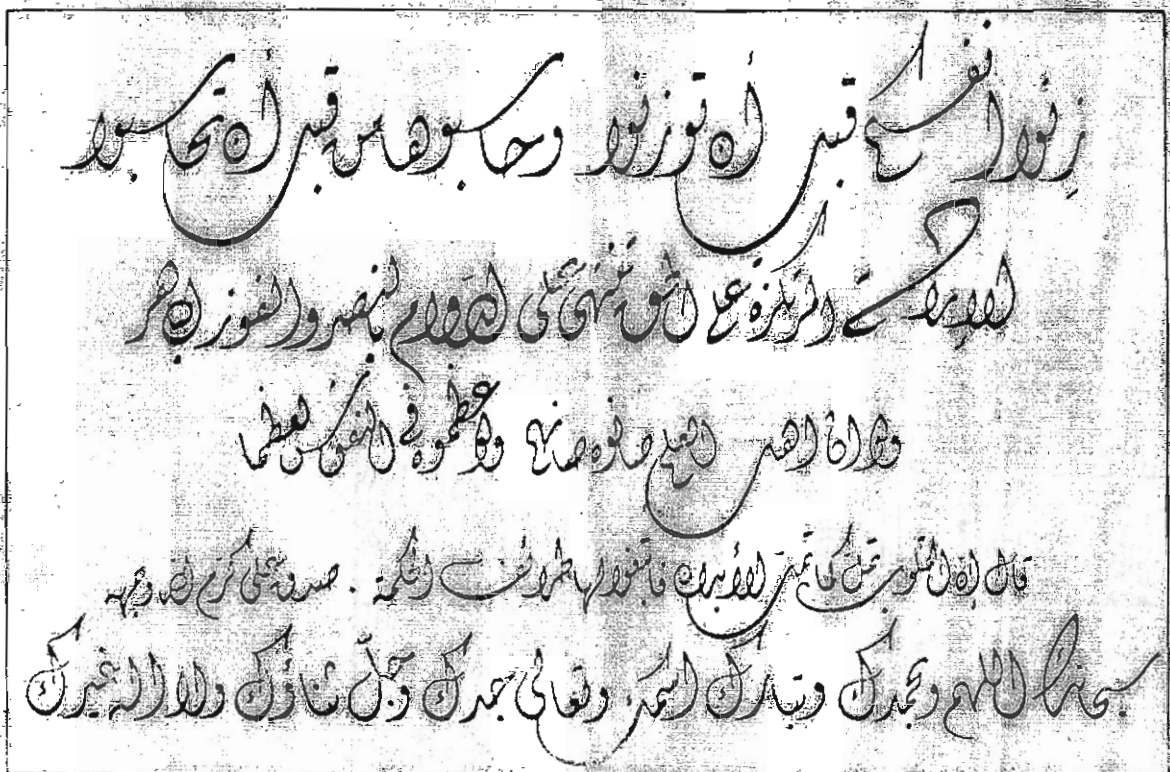 زنوا أنفسكم قبل أن توزنوا وحاسبوها من قبل أن تحاسبوا
على الدوام بالنصر والفوز
ولو ان اهل العلم صانوه صانهم ولو عظموه في النفوس لعظما
قال إن القلوب تمل كما تمل الأبدان فابتغوا لها طرائف الحكمة . صدق علي كرم الله وجهه
سبحانك اللهم وبحمدك وتبارك اسمك وتعالى جدك وجل ثناؤك ولا اله غيرك